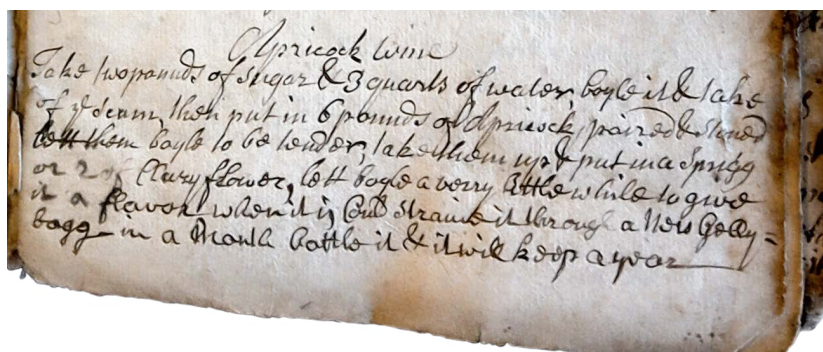 Apricock wine
Take two pounds of sugar & 3 quarts of water, boyle it & take
of ye scum, then put in 6 pounds of Apricock, paired & stoned
lett them boyle to be tender, take them up & put in a Sprigg
or 2 of Clary flower, lett boyle a verry little while to give
it a flavor when it is Could straine it through a new Gelly=
bagg in a Month bottle it & it will keep a year